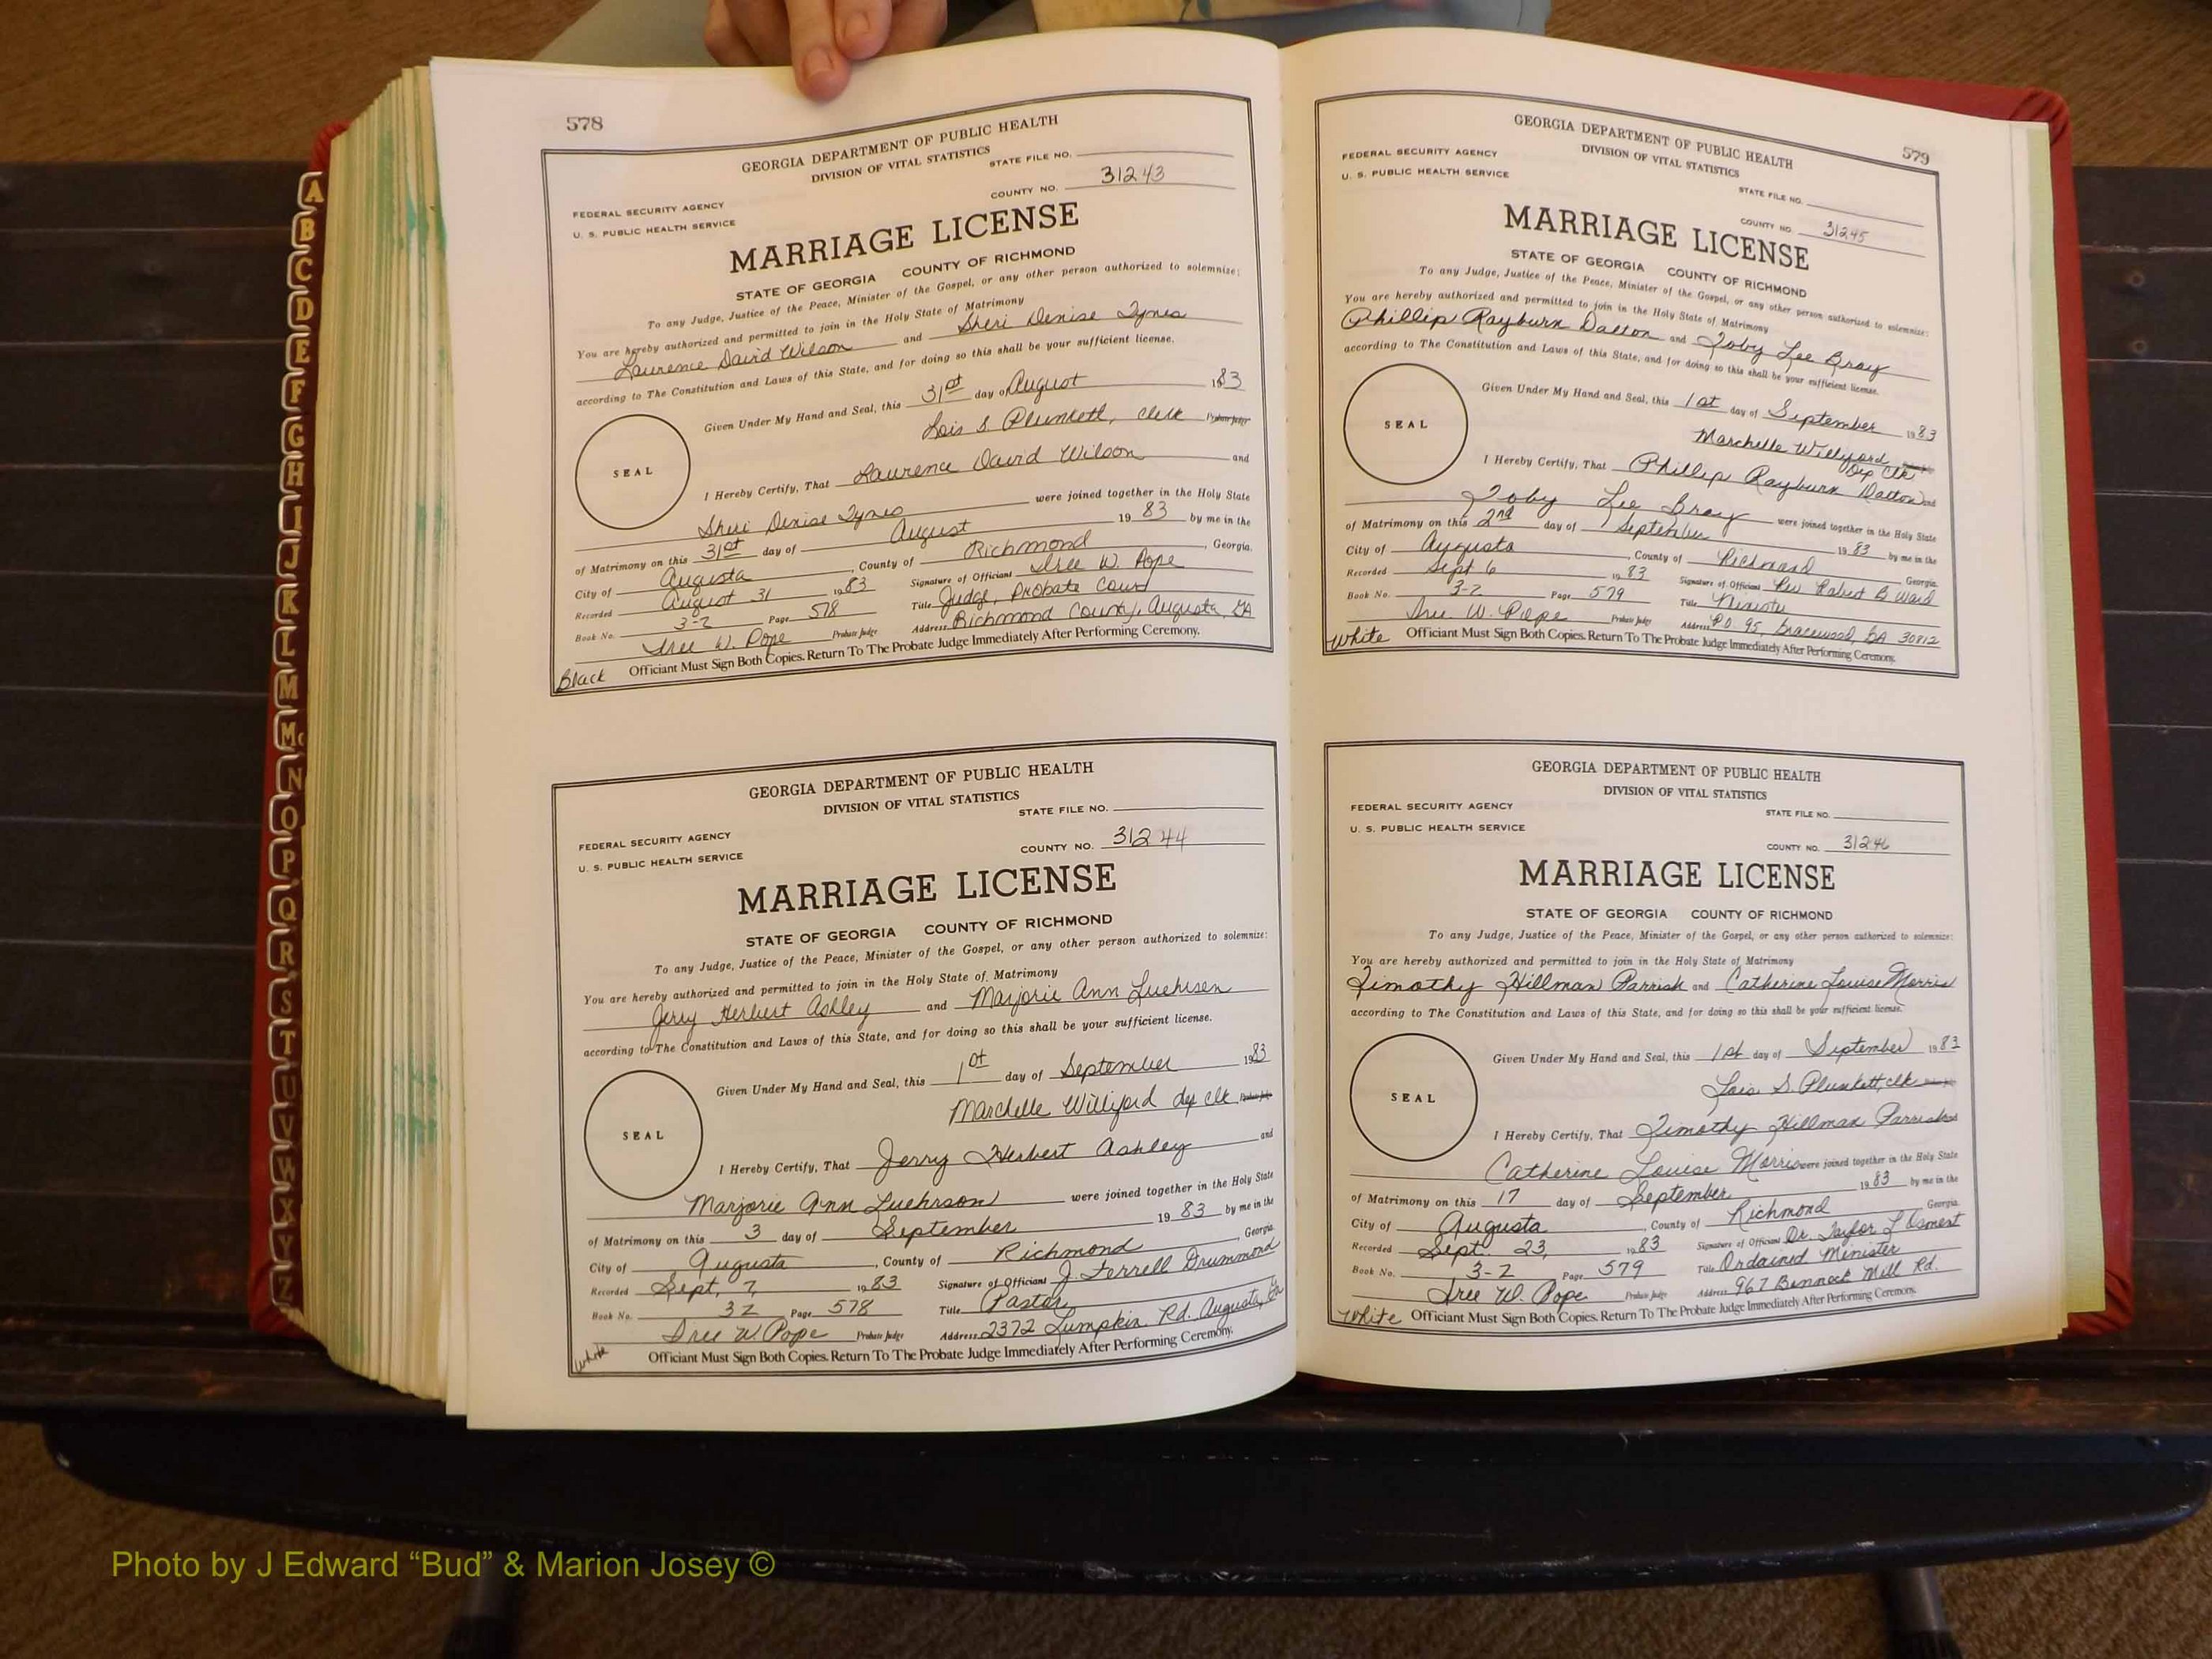 578
GEORGIA DEPARTMENT OF PUBLIC HEALTH
DIVISION OF VITAL STATISTICS
STATE FILE NO.
COUNTY NO. 31243
FEDERAL SECURITY AGENCY
U. S. PUBLIC HEALTH SERVICE
MARRIAGE LICENSE
STATE OF GEORGIA COUNTY OF RICHMOND
To any Judge, Justice of the Peace, Minister of the Gospel, or any other person authorized to solemnize:
You are hereby authorized and permitted to join in the Holy State of Matrimony
Laurence David Wilson and Sheri Denise Tynes
according to The Constitution and Laws of this State, and for doing so this shall be your sufficient license.
Given Under My Hand and Seal, this 31st day of August 1983
SEAL
Lois S Plunkett, Clerk Probate Judge
I Hereby Certify, That Laurence David Wilson and
Sheri Denise Tynes were joined together in the Holy State
of Matrimony on this 31st day of August 19 83 by me in the
City of Augusta, County of Richmond, Georgia.
Recorded August 31 1983 Signature of Officiant Iree W. Pope
Book No. 3-Z Page 578 Title Judge, Probate Court
Iree W. Pope Probate Judge Address Richmond County, Augusta, GA
Black Officiant Must Sign Both Copies. Return To The Probate Judge Immediately After Performing Ceremony.
GEORGIA DEPARTMENT OF PUBLIC HEALTH
DIVISION OF VITAL STATISTICS
STATE FILE NO.
FEDERAL SECURITY AGENCY
U. S. PUBLIC HEALTH SERVICE
COUNTY NO. 31244
MARRIAGE LICENSE
STATE OF GEORGIA COUNTY OF RICHMOND
To any Judge, Justice of the Peace, Minister of the Gospel, or any other person authorized to solemnize:
You are hereby authorized and permitted to join in the Holy State of Matrimony
Jerry Herbert Ashley and Marjorie Ann Luehrsen
according to The Constitution and Laws of this State, and for doing so this shall be your sufficient license.
Given Under My Hand and Seal, this 1st day of September 1983
SEAL
Marchelle Williford dep clk Probate Judge
I Hereby Certify, That Jerry Herbert Ashley and
Marjorie Ann Luehrson were joined together in the Holy State
of Matrimony on this 3 day of September 19 83 by me in the
City of Augusta, County of Richmond, Georgia.
Recorded Sept. 7, 1983 Signature of Officiant J. Terrell Drummond
Book No. 3Z Page 578 Title Pastor
Iree W. Pope Probate Judge Address 2372 Lumpkin Rd. Augusta, Ga
White Officiant Must Sign Both Copies. Return To The Probate Judge Immediately After Performing Ceremony.
579
GEORGIA DEPARTMENT OF PUBLIC HEALTH
DIVISION OF VITAL STATISTICS
FEDERAL SECURITY AGENCY
U. S. PUBLIC HEALTH SERVICE
STATE FILE NO.
COUNTY NO. 31245
MARRIAGE LICENSE
STATE OF GEORGIA COUNTY OF RICHMOND
To any Judge, Justice of the Peace, Minister of the Gospel, or any other person authorized to solemnize:
You are hereby authorized and permitted to join in the Holy State of Matrimony
Phillip Rayburn Dalton and Toby Lee Bray
according to The Constitution and Laws of this State, and for doing so this shall be your sufficient license.
Given Under My Hand and Seal, this 1st day of September 1983
SEAL
Marchelle Williford
Dep Clk
I Hereby Certify, That Phillip Rayburn Dalton and
Toby Lee Bray were joined together in the Holy State
of Matrimony on this 2nd day of September 1983 by me in the
City of Augusta, County of Richmond Georgia.
Recorded Sept 6 1983 Signature of Officiant Rev Robert B Ward
Book No. 3-Z Page 579 Title Minister
Iree W. Pope Probate Judge Address PO 95, Gracewood GA 30812
White Officiant Must Sign Both Copies. Return To The Probate Judge Immediately After Performing Ceremony.
GEORGIA DEPARTMENT OF PUBLIC HEALTH
DIVISION OF VITAL STATISTICS
FEDERAL SECURITY AGENCY
U. S. PUBLIC HEALTH SERVICE
STATE FILE NO.
COUNTY NO. 31246
MARRIAGE LICENSE
STATE OF GEORGIA COUNTY OF RICHMOND
To any Judge, Justice of the Peace, Minister of the Gospel, or any other person authorized to solemnize:
You are hereby authorized and permitted to join in the Holy State of Matrimony
Timothy Hillman Parrish and Catherine Louise Morris
according to The Constitution and Laws of this State, and for doing so this shall be your sufficient license.
Given Under My Hand and Seal, this 1st day of September 1983
SEAL
Lois S. Plunkett, clk
I Hereby Certify, That Timothy Hillman Parrish and
Catherine Louise Morris were joined together in the Holy State
of Matrimony on this 17 day of September 1983 by me in the
City of Augusta, County of Richmond Georgia.
Recorded Sept. 23, 1983 Signature of Officiant Dr. Taylor L Osment
Book No. 3-Z Page 579 Title Ordained Minister
Iree W. Pope Probate Judge Address 967 Bennock Mill Rd.
White Officiant Must Sign Both Copies. Return To The Probate Judge Immediately After Performing Ceremony.
A
B
C
D
E
F
G
H
I
J
K
L
M
Mc
N
O
P
Q
R
S
T
U
V
W
X
Y
Z
Photo by J Edward “Bud” & Marion Josey ©